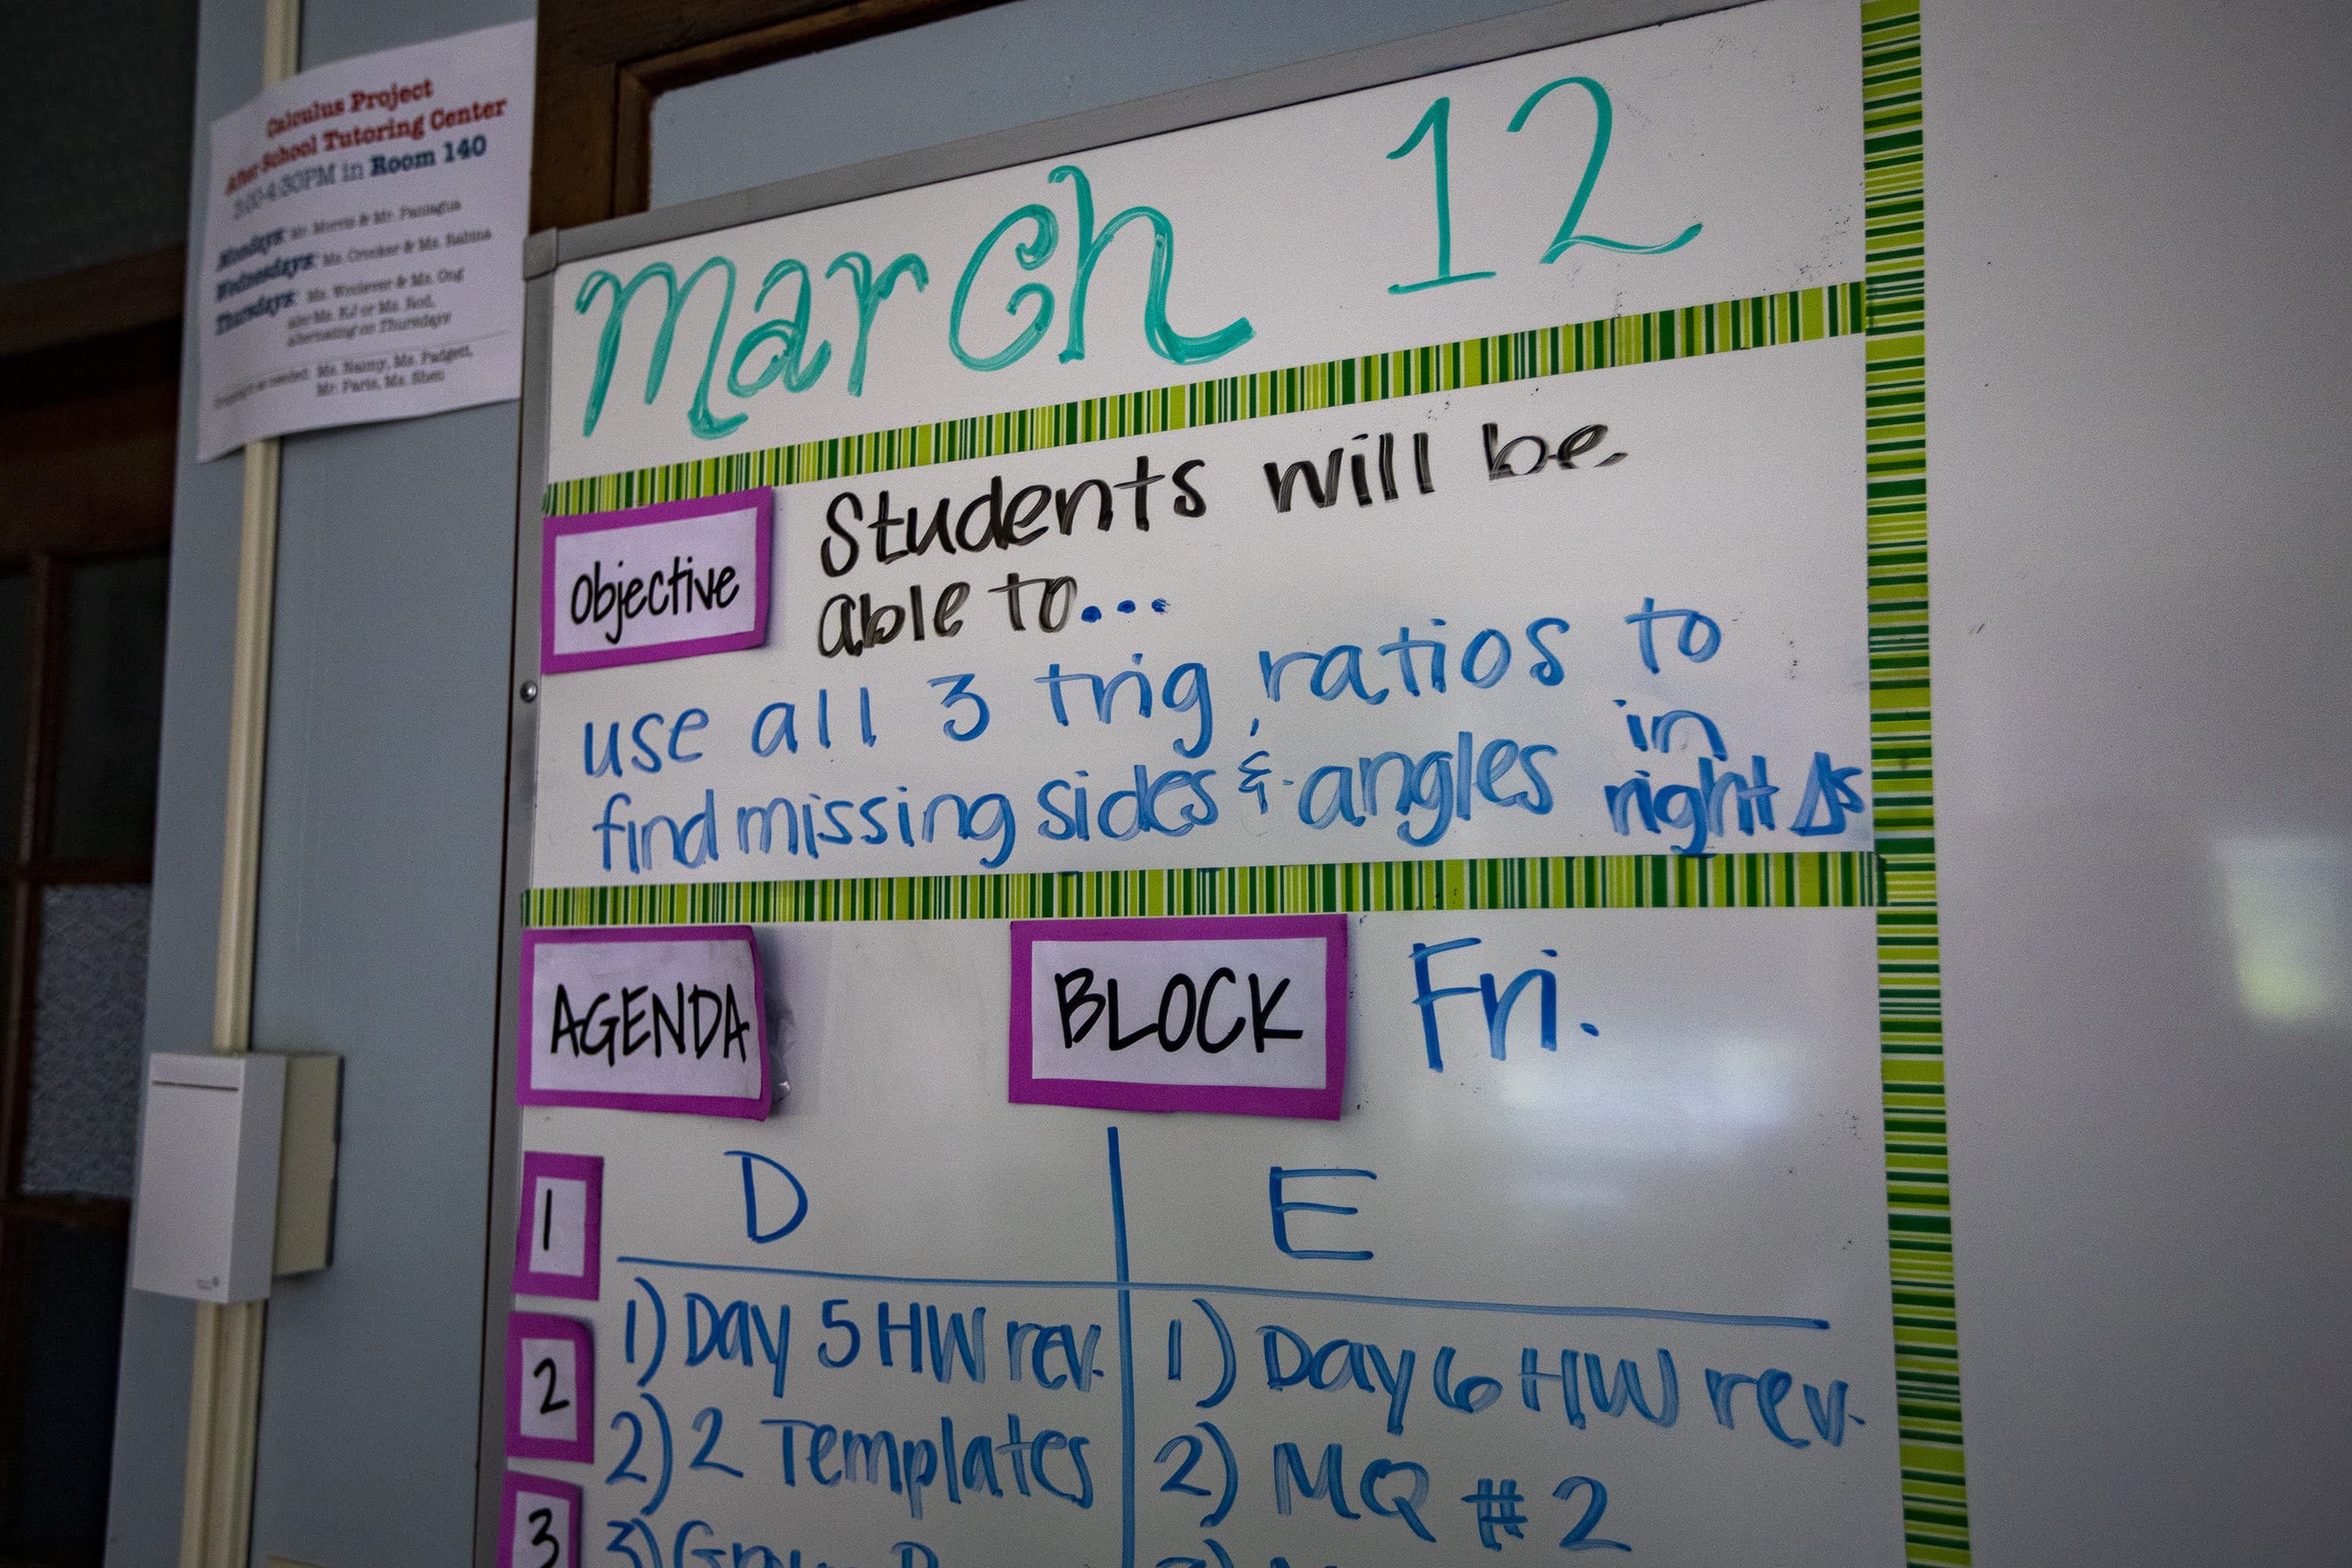 Calculus Project
After School Tutoring Center
3:00-4:30PM in Room 140
Mondays: Mr. Morris & Mr. Paniagua
Wednesdays: Ms. Crocker & Ms. Rahina
Thursdays: Ms. & Ms. Ong
also Ms. KJ or Ms. Rod,
alternating on Thursdays
as needed: Ms. Naimy, Ms. Padgett,
Mr. Paris, Ms. Shen
March 12
Objective
Students will be
able to...
use all 3 trig ratios to
find missing sides & angles in
right Δs
AGENDA
BLOCK Fri.
1
D
E
2
3
1) Day 5 HW rev.
2) 2 Templates
3)
1) Day 6 HW rev.
2) MQ #2